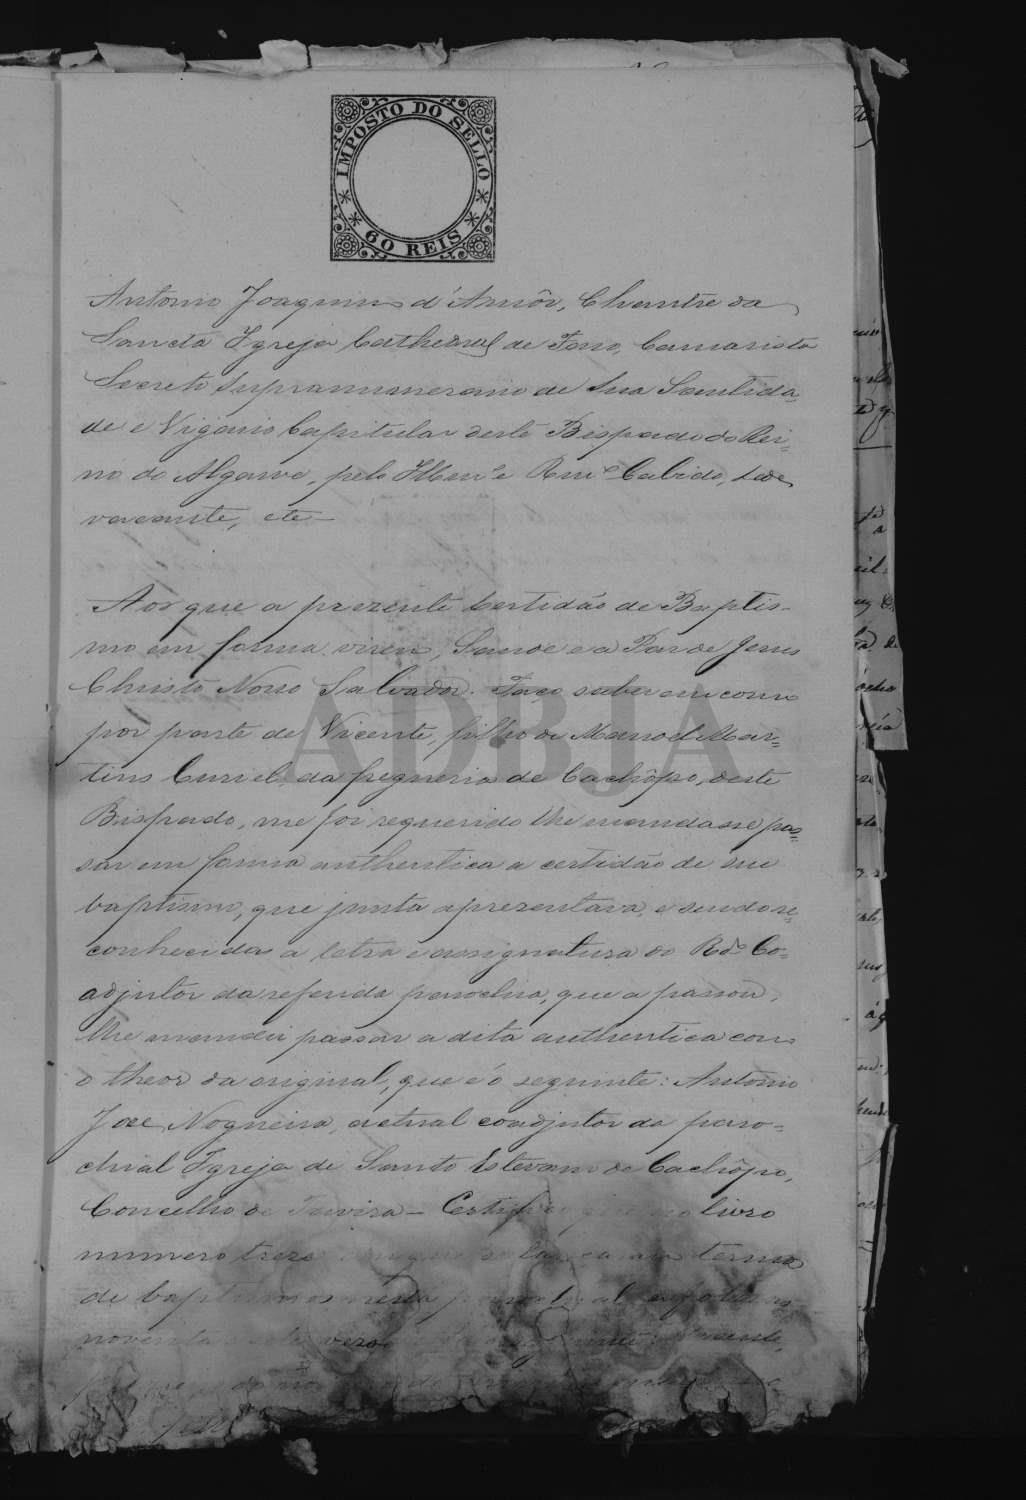 IMPOSTO DO SELLO
60 REIS
Antonio Joaquim d'Amôr, Chantre da
Sancta Igreja Cathedral de Faro, Camarista
Secreto Supranumerario de Sua Santida-
de e Vigario Capitular deste Bispado do Rei-
no do Algarve, pelo Illmº e Rmº Cabido, sede
vacante, etc
Aos que a prezente Certidão de Baptis-
mo em forma virem, Saude e a Paz de Jesus
Christo Nosso Salvador. Faço saber em como
por parte de Vicente, filho de Manoel Mar-
tins Curiel, da freguesia de Cachôpo, deste
Bispado, me foi requerido lhe mandasse pas-
sar em forma authentica a certidão de seu
baptismo, que junta aprezentava, e sendo re-
conhecida a letra e assignatura do Rdº Co-
adjutor da referida parochia, que a passou,
lhe mandei passar a dita authentica com
o theor da original, que é o seguinte: Antonio
Jose Nogueira, actual coadjutor da paro-
chial Igreja de Santo Estevam de Cachôpo,
Concelho de Tavira - Certifico que no livro
numero treze em que se termos
de baptismos nesta parochial a folhas
noventa verso
ADBJA